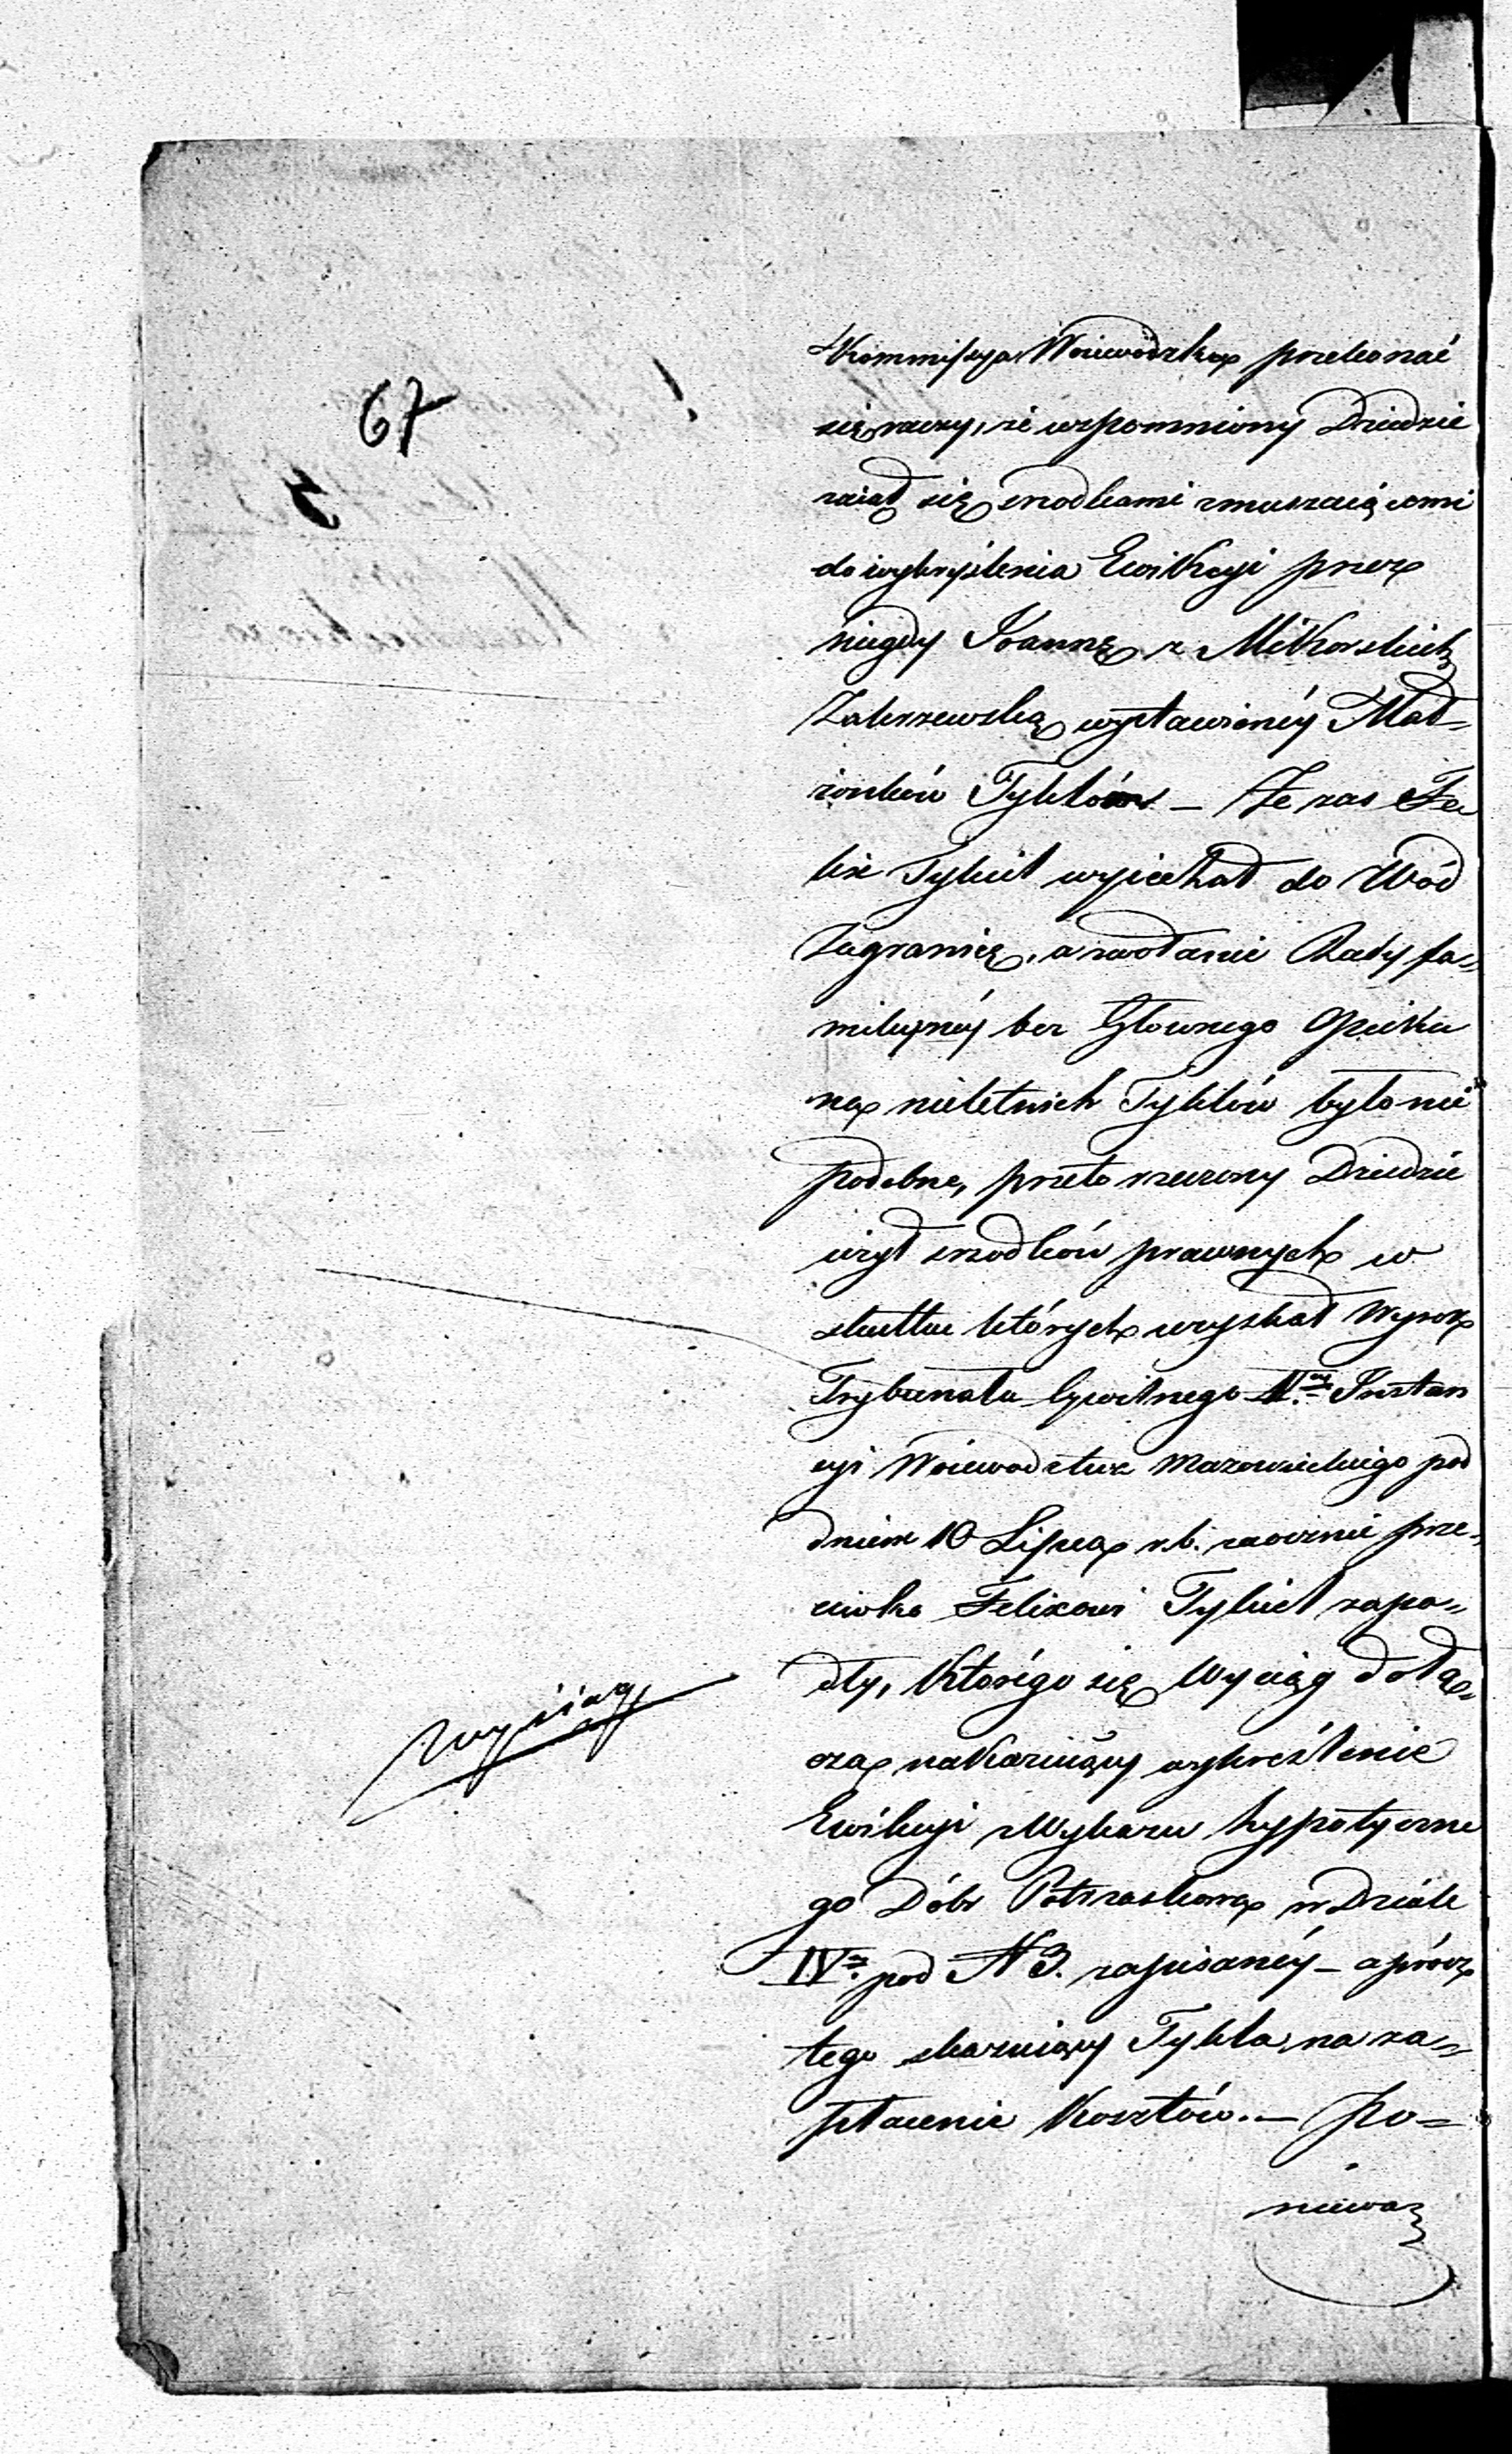 67
5
Kommissya Woiewódzka przekonać
się raczy, że wspomniony Dziedzic
zaiął się srzodkami zmuszaiącemi
do wykryślenia Ewikcyi przez
niegdy Joannę z Mikorskich
Zakrzewską wystawionéy Mał-
żonków Tykló​w – Że zas Fe
lix Tykiel wyiechał do Wód
Zagranicę, a zwołanie Rady fa-
milyinéy bez Głownego Opieku
na nieletnich Tyklów było nie
podobne, przeto rzeczony Dziedzic
użył srzodków prawnych w
skutku których uzyskał Wyrok
Trybunału Cywilnego Instan
cyi Woiewodztwa Mazowieckiego pod
dniem 10 Lipca r.b. zaocznie prze-
ciwko Felixowi Tykiel zapa-
dły, którégo się Wyciąg dołą-
cza nakazuiący wykréślenie
Ewikcyi z Wykazu hypotyczne
go Dóbr Potrzaskowa w Dziale
IV. pod N 3. zapisanéy – a prócz
tego skazuiący Tykla, na za-
płacenie kosztów. – po-
nieważ
wyciąg